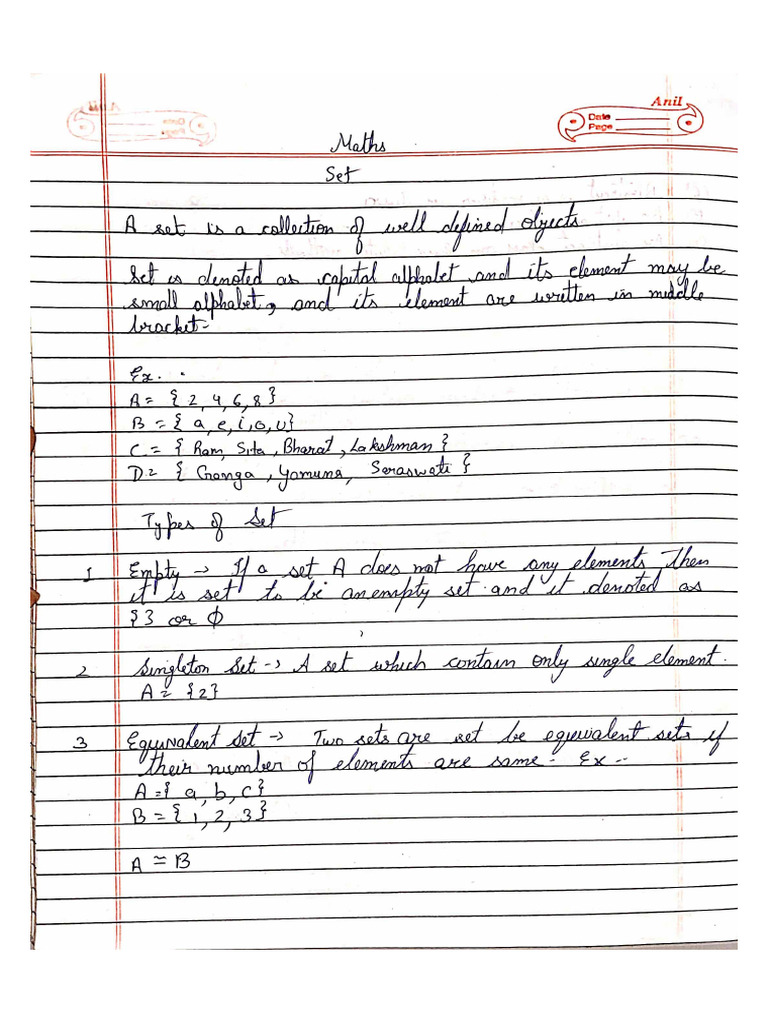 Anil
Date
Page
Maths
Set
A set is a collection of well defined objects.
Set is denoted as capital alphabet and its element may be
small alphabet, and its element are written in middle
bracket-
Ex. .
A= {2, 4, 6, 8}
B = {a, e, i, o, u}
C = {Ram, Sita, Bharat, Lakshman}
D= {Ganga, Yamuna, Seraswati}
Types of Set
1 Empty → If a set A does not have any elements then
it is set to be an empty set. and it denoted as
{} or ϕ
2 Singleton Set → A set which contain only single element.
A = {2}
3 Equivalent set → Two sets are set be equivalent sets if
their number of elements are same - Ex --
A = {a, b, c}
B = {1, 2, 3}
A ≃ B